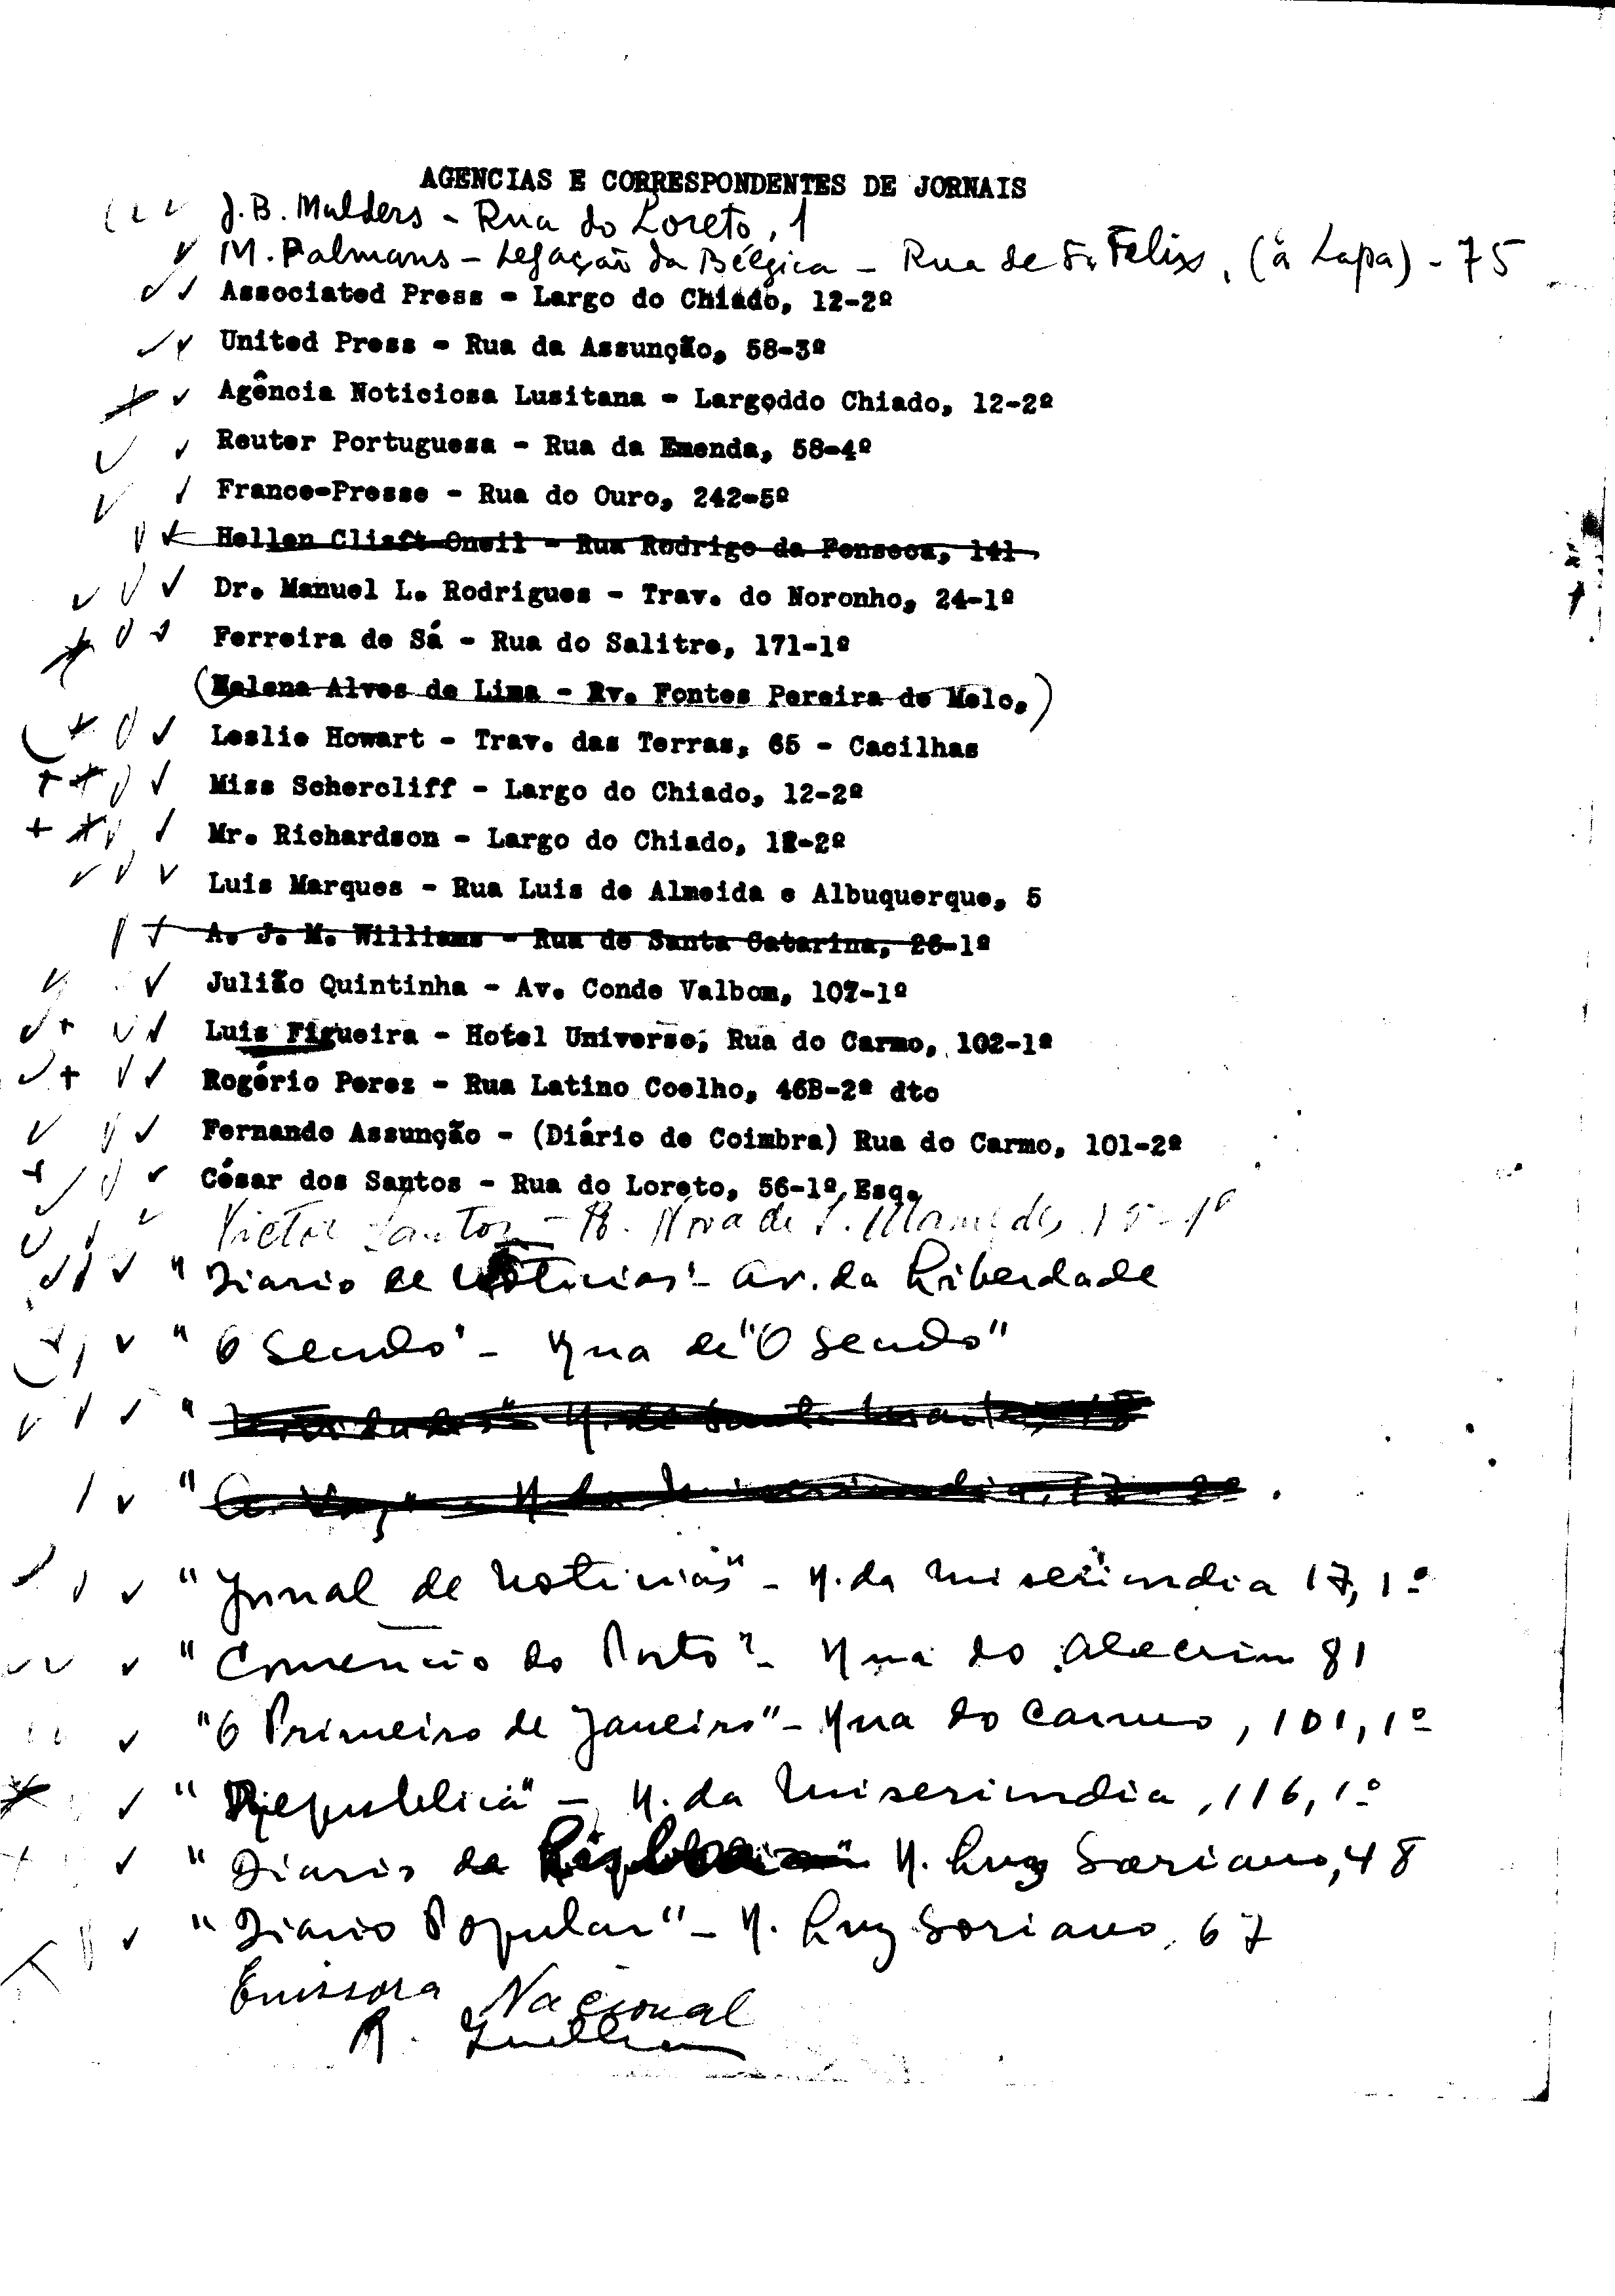 AGENCIAS E CORRESPONDENTES DE JORNAIS
J.B. Mulders - Rua do Loreto, 1
M. Palmans - Legação da Bélgica - Rua de S. Felix, (à Lapa) - 75
Associated Press - Largo do Chiado, 12-2º
United Press - Rua da Assunção, 58-3º
Agência Noticiosa Lusitana - Largoddo Chiado, 12-2º
Reuter Portuguesa - Rua da Emenda, 58-4º
France-Presse - Rua do Ouro, 242-5º
Hellen Clieft Oneil - Rua Rodrigo da Fonseca, 141
Dr. Manuel L. Rodrigues - Trav. do Noronho, 24-1º
Ferreira de Sá - Rua do Salitre, 171-1º
(Helena Alves de Lima - Av. Fontes Pereira de Melo,)
Leslie Howart - Trav. das Terras, 65 - Cacilhas
Miss Schercliff - Largo do Chiado, 12-2º
Mr. Richardson - Largo do Chiado, 12-2º
Luis Marques - Rua Luis de Almeida e Albuquerque, 5
A. J. M. Williams - Rua de Santa Catarina, 26-1º
Julião Quintinha - Av. Conde Valbom, 107-1º
Luis Figueira - Hotel Universo, Rua do Carmo, 102-1º
Rogério Perez - Rua Latino Coelho, 46B-2º dto
Fernando Assunção - (Diário de Coimbra) Rua do Carmo, 101-2º
César dos Santos - Rua do Loreto, 56-1º, Esq.
Victor Santos - R. Nova de S. Mamede,
"Diario de Noticias" - Av. da Liberdade
"O Seculo" - Rua de "O Seculo"
"Novidades" R. de Santa Marta,
"A Voz" - R. da Misericordia, 17 - 2º
"Jornal de Noticias" - R. da Misericordia 17, 1º
"Comercio do Porto" - Rua do Alecrim 81
"O Primeiro de Janeiro" - Rua do Carmo, 101, 1º
"Republica" - R. da Misericordia, 116, 1º
"Diario de Lisboa" R. Luz Soriano, 48
"Diario Popular" - R. Luz Soriano, 67
Emissora Nacional
R.